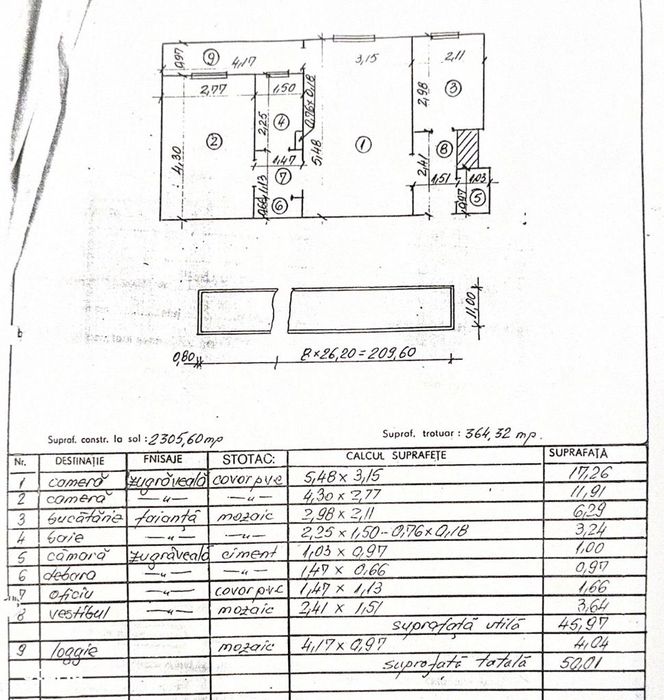 0,97 ⑨ 4,17 3,15 2,11
2,77 1,50 0,76×0,18 2,98 ③
2,25 ④
② 4,30 5,48 ① ⑧
1,47 2,41
⑦ 1,51 1,03
1,13
0,66 ⑥ 0,97 ⑤
11,00
0,80 8×26,20=209,60
Supraf. constr. la sol : 2305,60 mp Supraf. trotuar : 364,32 mp.
Nr. DESTINAȚIE FNISAJE STOTAC: CALCUL SUPRAFEȚE SUPRAFAȚĂ
1 cameră zugrăveală covor pvc 5,48 × 3,15 17,26
2 cameră —„— —„— 4,30 × 2,77 11,91
3 bucătărie faianță mozaic 2,98 × 2,11 6,29
4 baie —„— —„— 2,25 × 1,50 - 0,76 × 0,18 3,24
5 cămară zugrăveală ciment 1,03 × 0,97 1,00
6 debara —„— —„— 1,47 × 0,66 0,97
7 oficiu —„— covor pvc 1,47 × 1,13 1,66
8 vestibul —„— mozaic 2,41 × 1,51 3,64
suprafață utilă 45,97
9 loggie mozaic 4,17 × 0,97 4,04
suprafată tatală 50,01